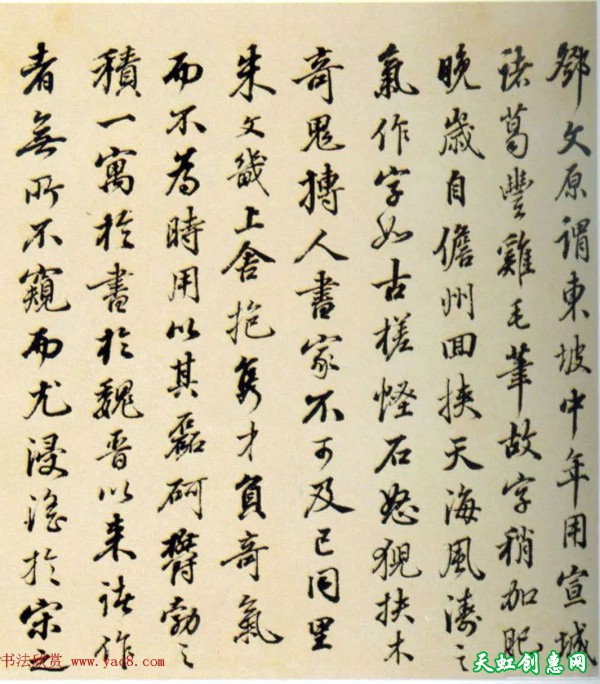 鄧文原謂東坡中年用宣城
諸葛豐雞毛筆故字稍加肥
晚歲自儋州回挾天海風濤之
氣作字如古槎怪石怒猊抉木
奇鬼搏人書家不可及已同里
朱文畿上舍抱雋才負奇氣
而不為時用以其磊砢欝勃之
積一寓於書於魏晉以來諸作
者無所不窺而尤浸淫於宋之
书法欣赏 www.yac8.com
天虹创惠网